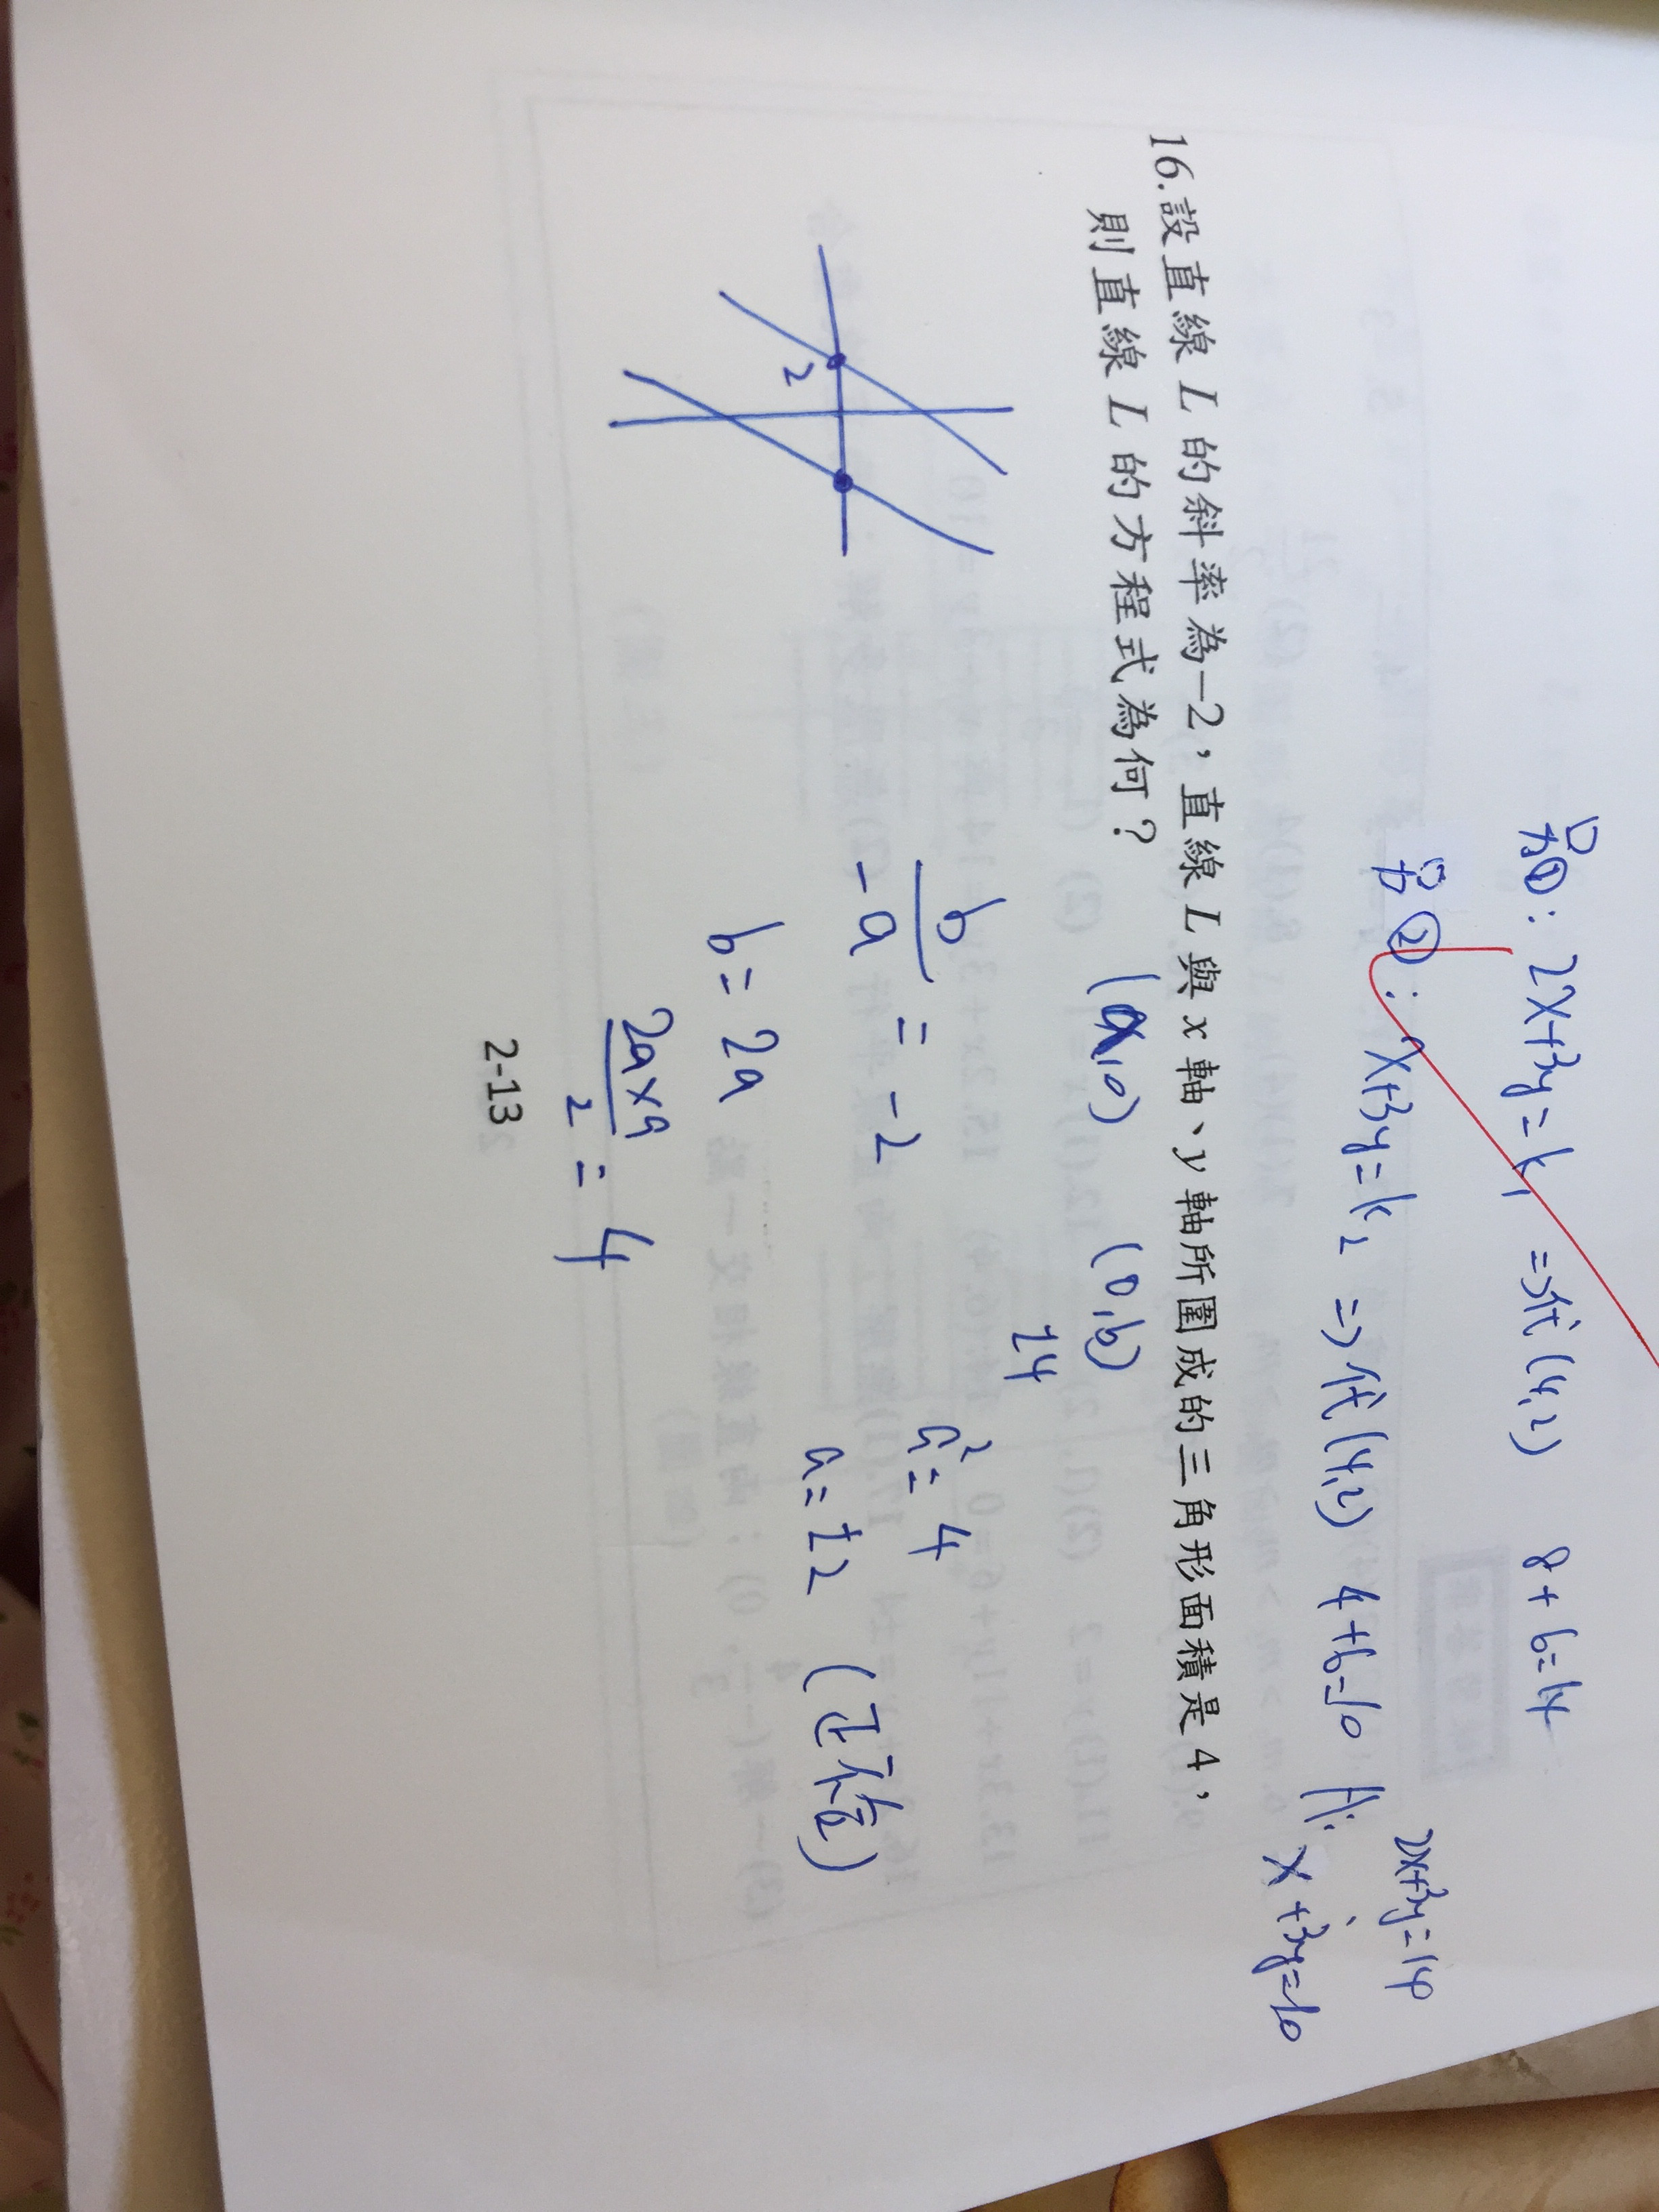 ①: 2x+3y=k₁ ⇒代(4,2) 8+6=14
2x+3y=14
②: x+3y=k₂ ⇒代(4,2) 4+6=10 A:
x+3y=10
16.設直線 L 的斜率為−2，直線 L 與 x 軸、y 軸所圍成的三角形面積是 4，
則直線 L 的方程式為何？
(a,0) (0,b)
b/-a = -2
a²=4
b=2a
a=±2
2a×a/2 = 4
2
2-13